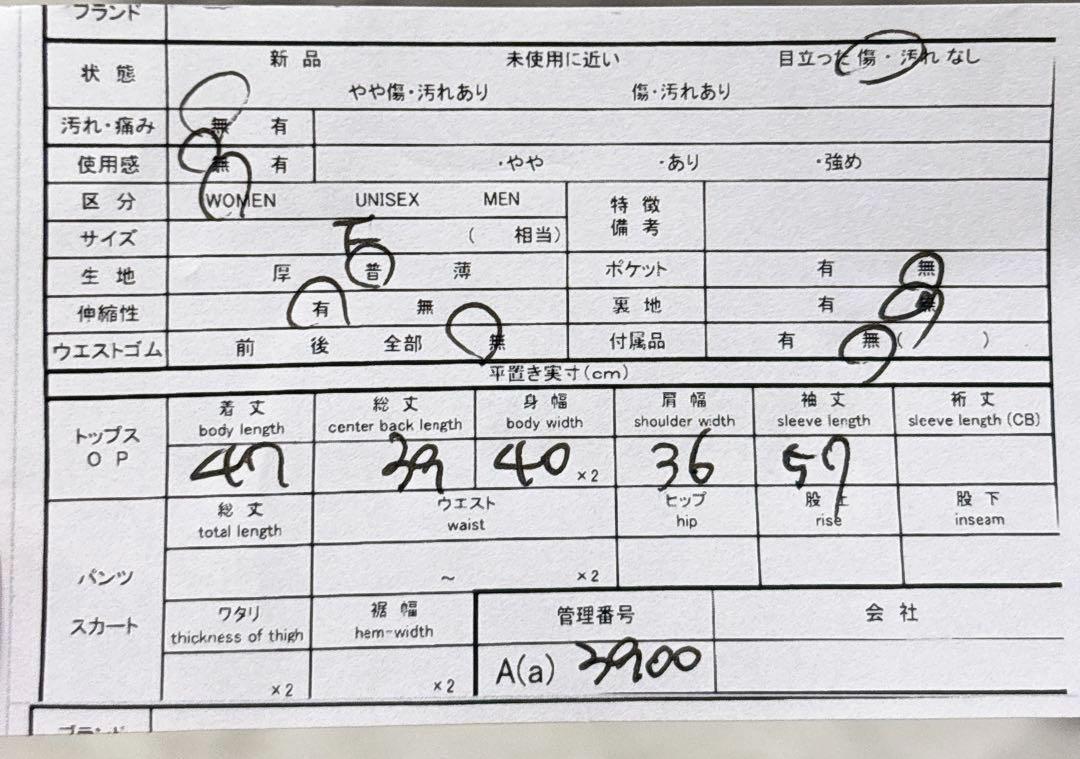 ブランド
状態 新品 未使用に近い 目立った傷・汚れなし
やや傷・汚れあり 傷・汚れあり
汚れ・痛み 無 有
使用感 無 有 ・やや ・あり ・強め
区分 WOMEN UNISEX MEN 特徴
備考
サイズ ( 相当)
生地 厚 普 薄 ポケット 有 無
伸縮性 有 無 裏地 有 無
ウエストゴム 前 後 全部 無 付属品 有 無 ( )
平置き実寸(cm)
トップス
OP
着丈 総丈 身幅 肩幅 袖丈 裄丈
body length center back length body width shoulder width sleeve length sleeve length (CB)
47 39 40 ×2 36 57
パンツ
スカート
総丈 ウエスト ヒップ 股上 股下
total length waist hip rise inseam
~ ×2
ワタリ 裾幅 管理番号 会社
thickness of thigh hem-width
×2 ×2 A(a) 3900
ブランド